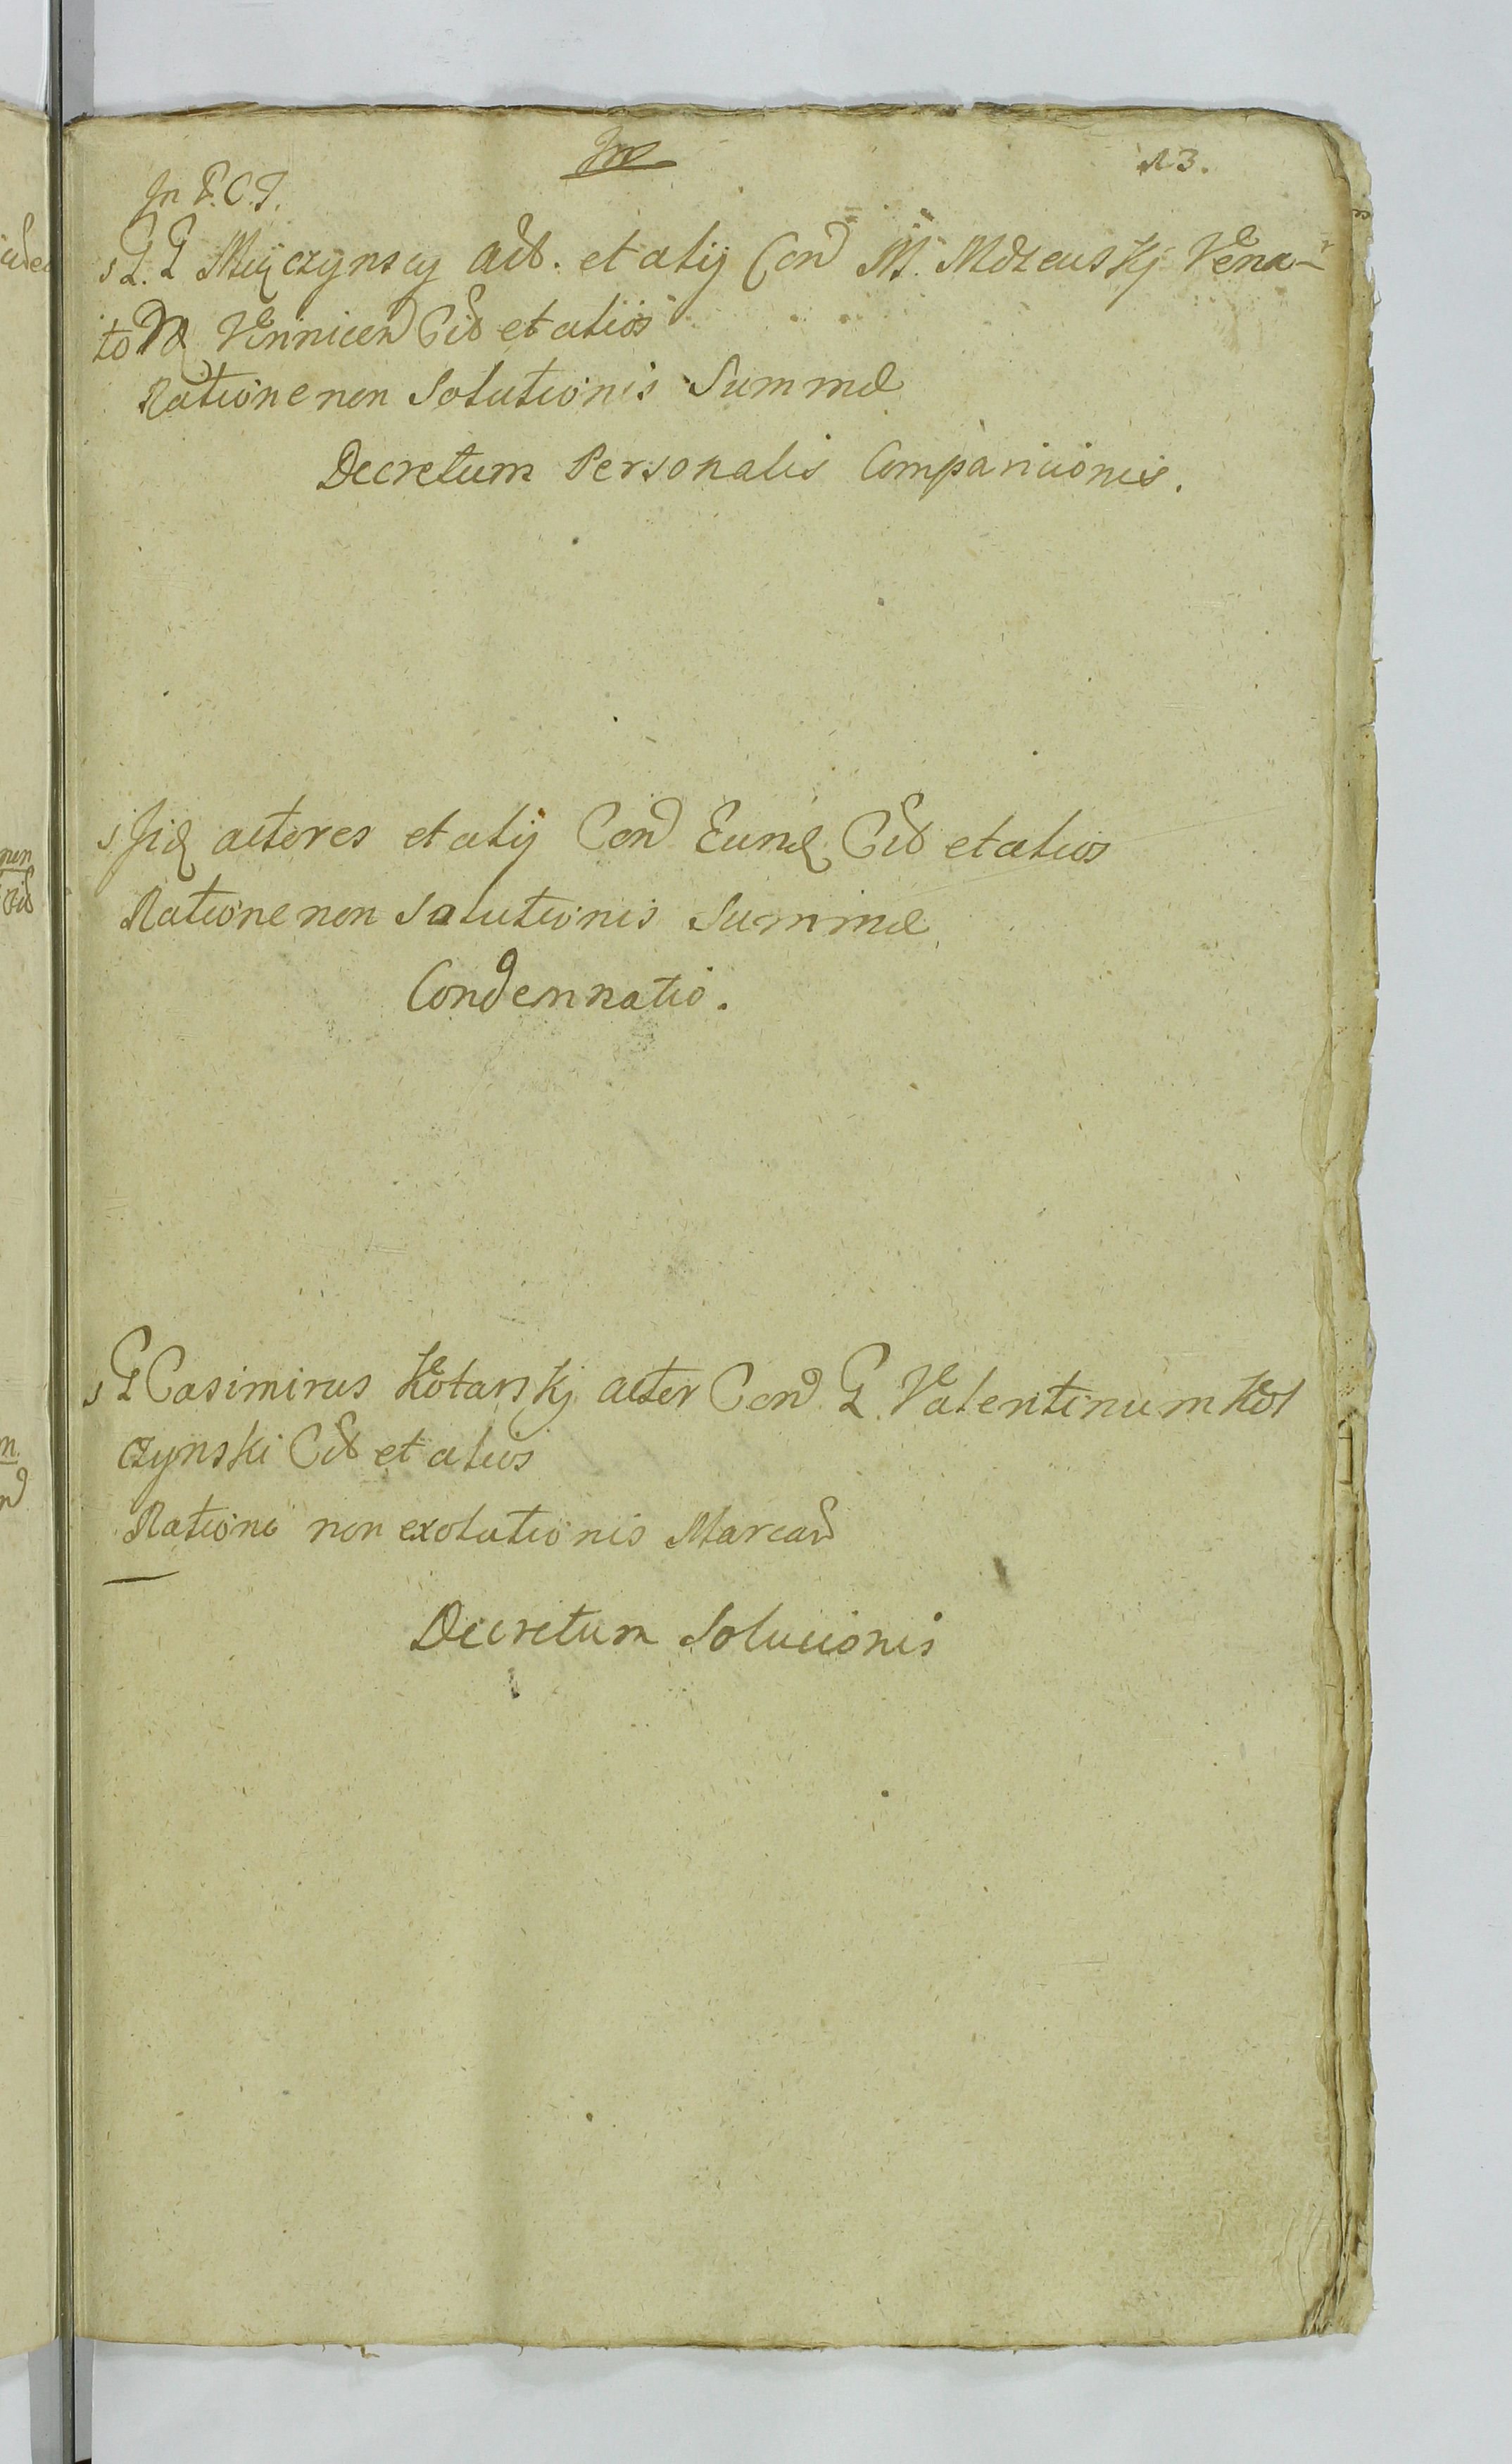 13.
In P. C. T.
G. G. Miączynscy Act. et alij Con M. Mdzeuskj Vena-
toR Vinnicen Cit et alios
Ratione non Solutionis Summæ
Decretum Personalis Comparicionis.
Jidq actores et alij Con Eundq Cit et alios
Ratione non Solutionis Summæ
Condemnatio.
G Casimirus Kotarskj actor Con G. Valentinum Kol
czynski Cit et alios
Ratione non exolutionis Marcar
Decretum Solucionis